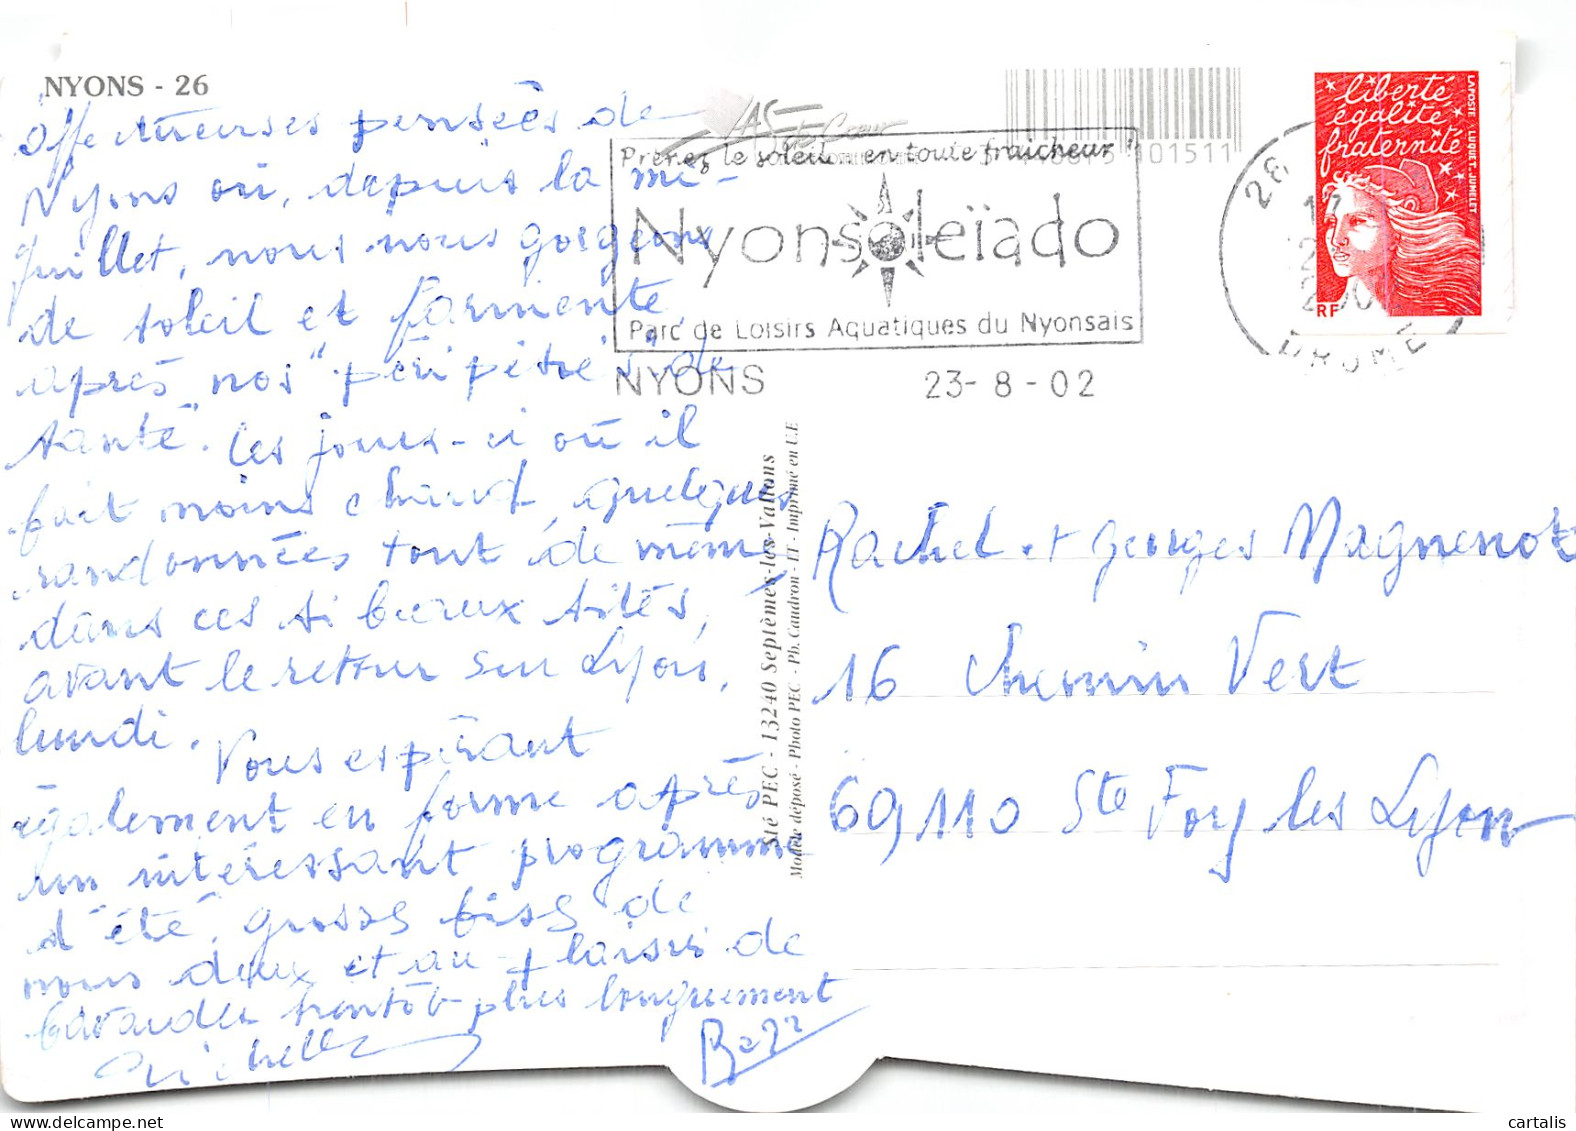 NYONS - 26
Affectueuses pensées de
Nyons où, depuis la mi-
juillet, nous nous gorgeons
de soleil et farniente,
après nos "péripéties de
santé". Ces jours-ci où il
fait moins chaud, quelques
randonnées tout de même
dans ces si beaux sites,
avant le retour sur Lyon,
lundi.
Vous espérant
également en forme après
un intéressant programme
d'été, grosses bises de
nous deux et au plaisir de
bavarder bientôt plus longuement
Michelle
Sté PEC - 13240 Septèmes-les-Vallons
Modèle déposé - Photo PEC - Ph. Caudron - IT - Imprimé en U.E
as de Coeur
101511
Prenez le soleil en toute fraicheur !
Nyonsoleïado
Parc de Loisirs Aquatiques du Nyonsais
NYONS 23- 8 - 02
26
DROME
liberté
égalité
fraternité
RF
LAPOSTE LUQUET. JUMELET
Rachel et Georges Magnenot
16 Chemin Vert
69110 Ste Foy les Lyon
cartalis